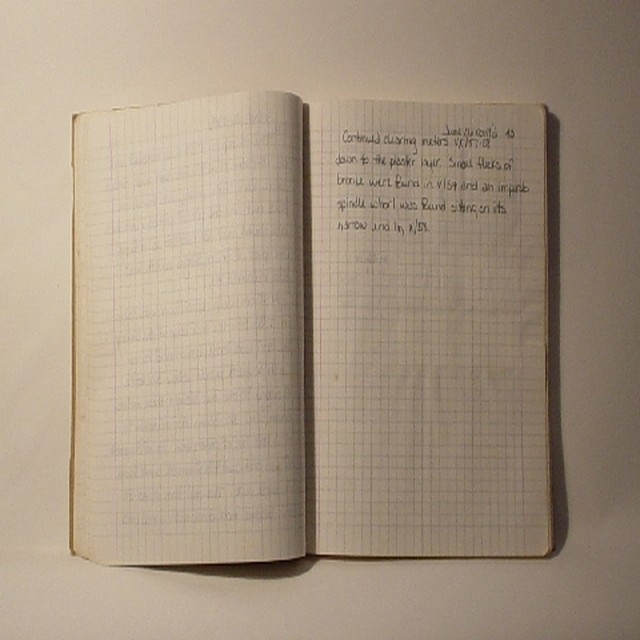 June cont'd 13
Continued clearing meters
down to the plaster layer. Small flecks of
bronze were found in v/59 and an impanb
spindle whorl was found sitting on its
narrow end in